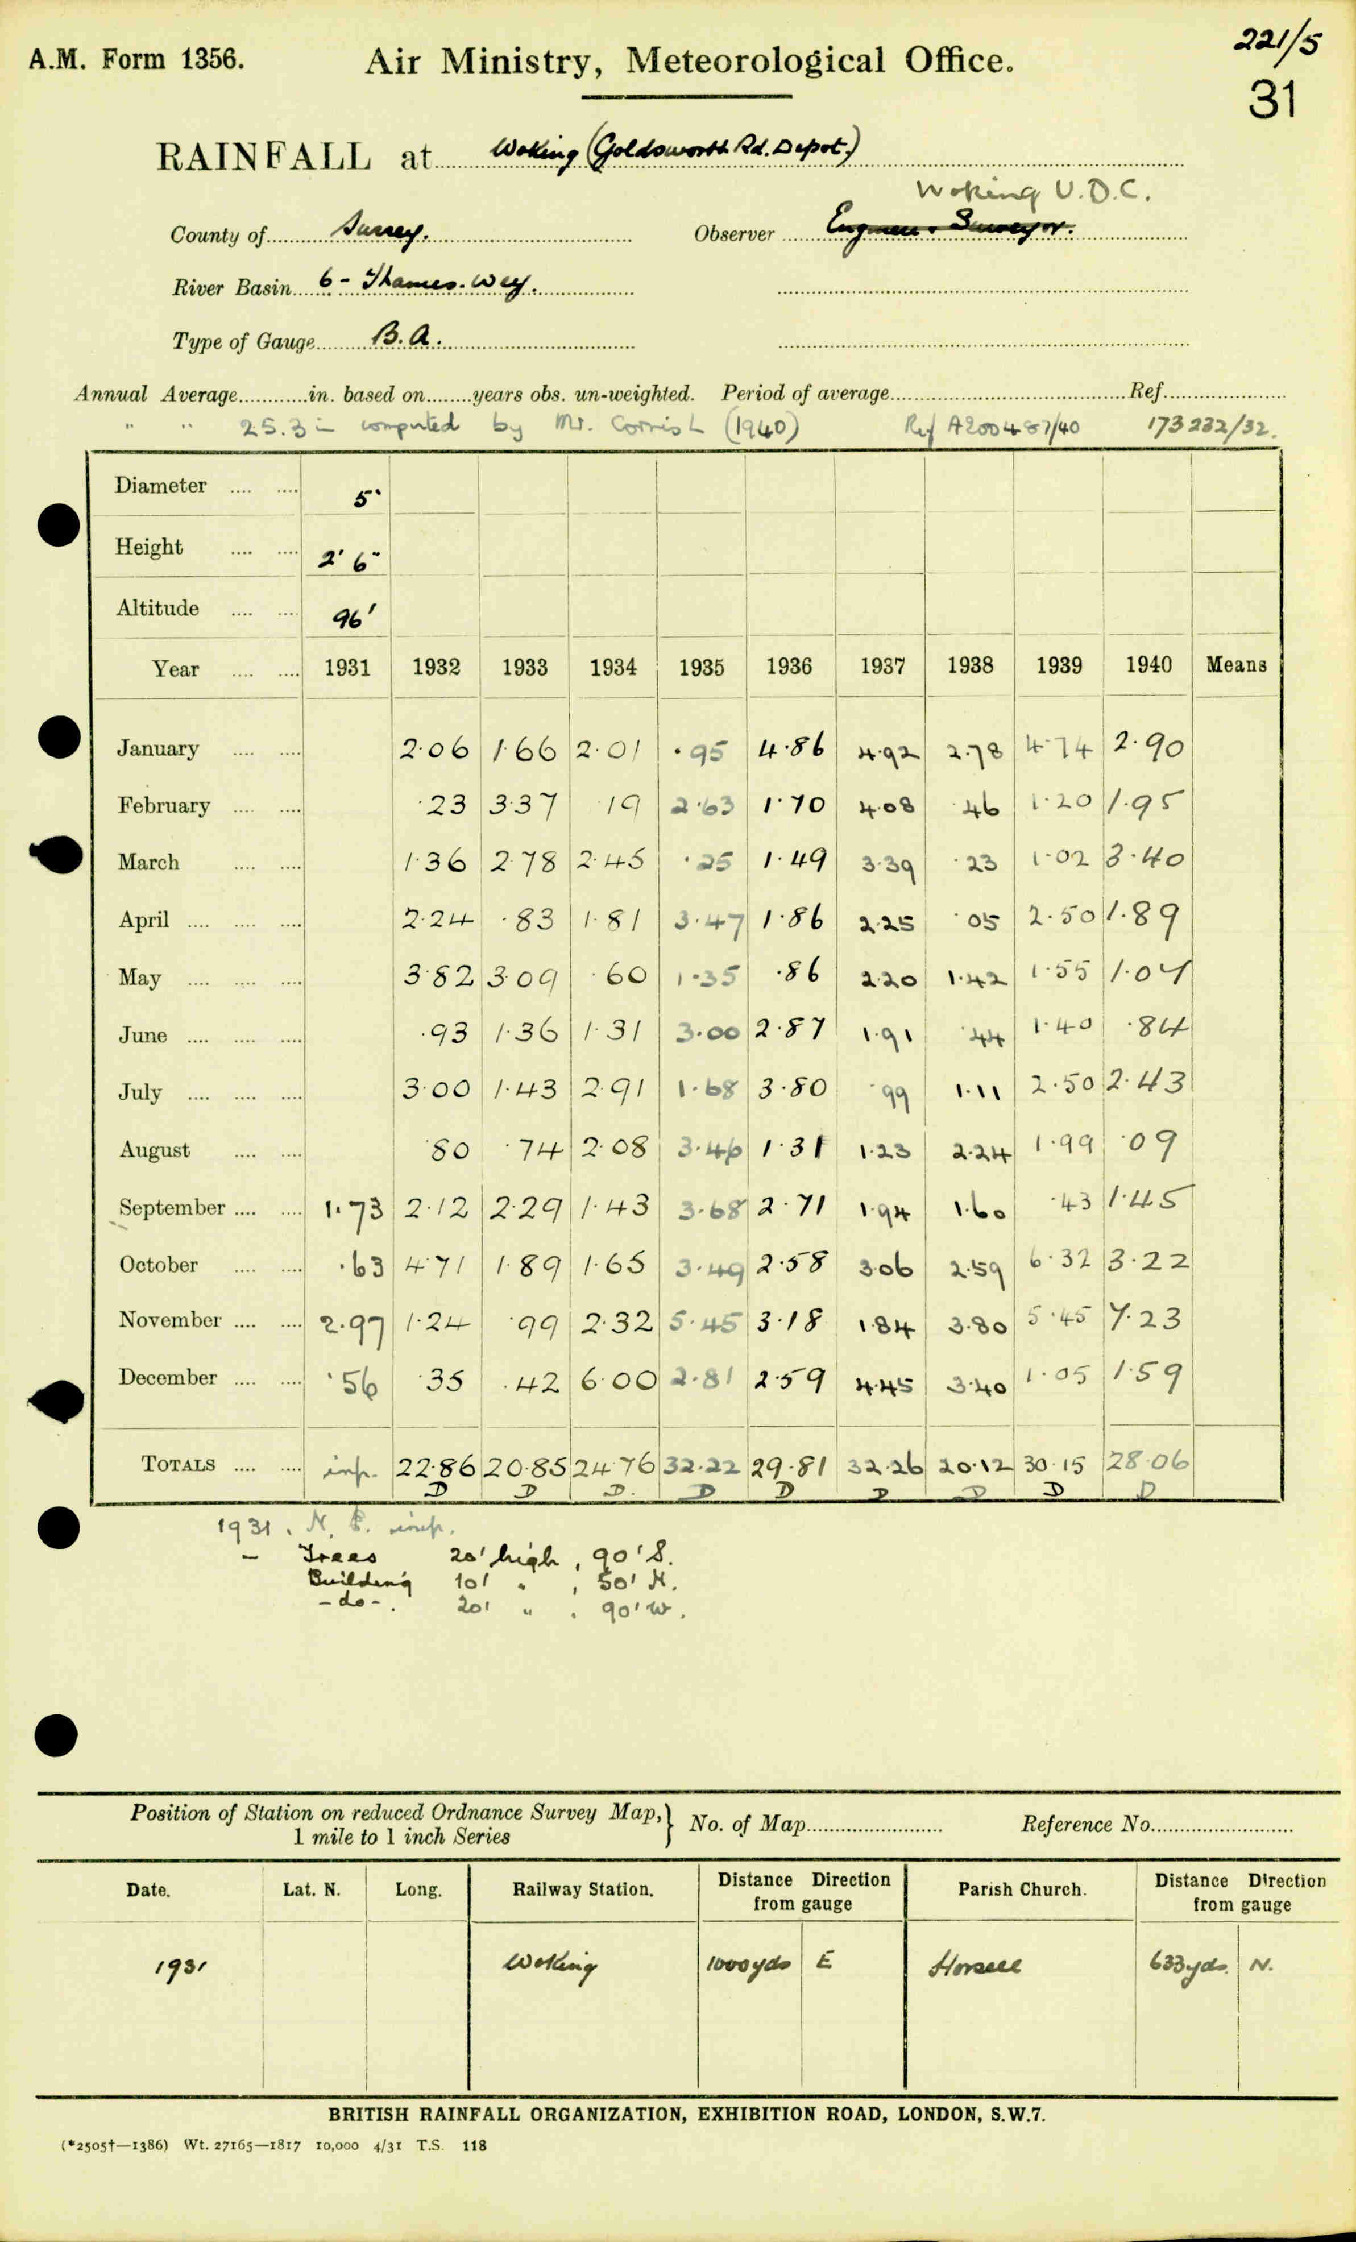 221/5
A.M. Form 1356. Air Ministry, Meteorological Office.
31
RAINFALL at Woking (Goldsworth Rd. Depot.)
Woking U.D.C.
County of Surrey. Observer Engineer & Surveyor.
River Basin 6 - Thames. Wey.
Type of Gauge B.A.
Annual Average in. based on years obs. un-weighted. Period of average Ref.
" " 25.3 in computed by Mr. Cornish (1940) Ref A200487/40 173232/32.
Diameter 5"
Height 2' 6"
Altitude 96'
Year 1931 1932 1933 1934 1935 1936 1937 1938 1939 1940 Means
January 2.06 1.66 2.01 .95 4.86 4.92 2.78 4.74 2.90
February .23 3.37 .19 2.63 1.70 4.08 .46 1.20 1.95
March 1.36 2.78 2.45 .25 1.49 3.39 .23 1.02 3.40
April 2.24 .83 1.81 3.47 1.86 2.25 .05 2.50 1.89
May 3.82 3.09 .60 1.35 .86 2.20 1.42 1.55 1.07
June .93 1.36 1.31 3.00 2.87 1.91 .44 1.40 .84
July 3.00 1.43 2.91 1.68 3.80 .99 1.11 2.50 2.43
August .80 .74 2.08 3.46 1.31 1.23 2.24 1.99 .09
September 1.73 2.12 2.29 1.43 3.68 2.71 1.94 1.60 .43 1.45
October .63 4.71 1.89 1.65 3.49 2.58 3.06 2.59 6.32 3.22
November 2.97 1.24 .99 2.32 5.45 3.18 1.84 3.80 5.45 7.23
December .56 .35 .42 6.00 2.81 2.59 4.45 3.40 1.05 1.59
TOTALS inp. 22.86 20.85 24.76 32.22 29.81 32.26 20.12 30.15 28.06
D D D. D D D D D D
1931. N. P. inp.
- Trees 20' high, 90' S.
Building 10' " , 50' N.
- do -. 20' " , 90' W.
Position of Station on reduced Ordnance Survey Map, } No. of Map Reference No.
1 mile to 1 inch Series
Date. Lat. N. Long. Railway Station. Distance Direction from gauge Parish Church. Distance Direction from gauge
1931 Woking 1000 yds E Horsell 633 yds. N.
BRITISH RAINFALL ORGANIZATION, EXHIBITION ROAD, LONDON, S.W.7.
(*2505†—1386) Wt. 27165—1817 10,000 4/31 T.S. 118